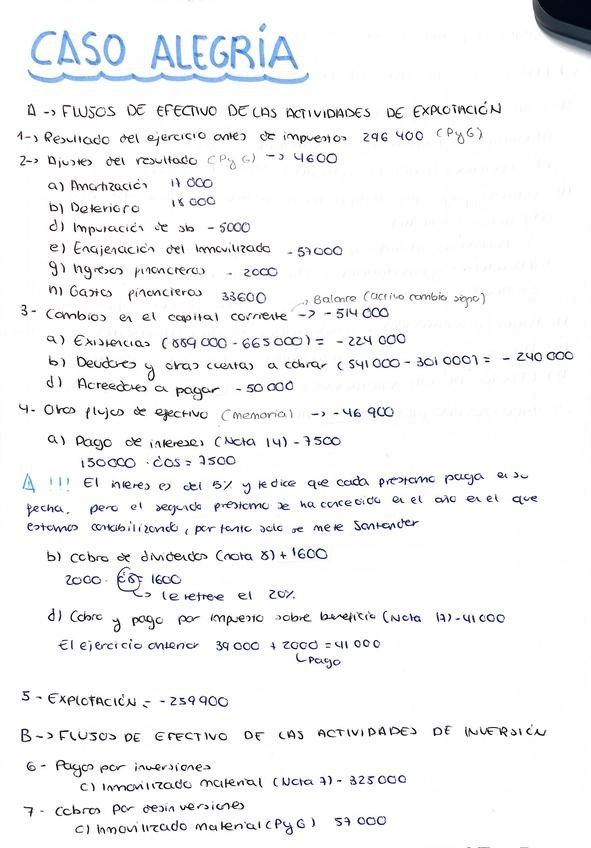 CASO ALEGRÍA
A -> FLUJOS DE EFECTIVO DE LAS ACTIVIDADES DE EXPLOTACIÓN
1-> Resultado del ejercicio antes de impuestos 296 400 (PyG)
2-> Ajustes del resultado (PyG) -> 4600
a) Amortización 17 000
b) Deterioro 18 000
d) Imputación de sb - 5000
e) Enajenación del inmovilizado - 57000
g) Ingresos financieros - 2000
h) Gastos financieros 33600
-> Balance (activo cambio signo)
3- Cambios en el capital corriente -> - 514 000
a) Existencias (889 000 - 665 000) = - 224 000
b) Deudores y otras cuentas a cobrar (541 000 - 301 000) = - 240 000
d) Acreedores a pagar - 50 000
4- Otros flujos de efectivo (memoria) -> - 46 900
a) Pago de intereses (Nota 14) - 7500
150000 · 0'05 = 7500
⚠ !!! El interés es del 5% y te dice que cada préstamo paga en su
fecha, pero el segundo préstamo se ha concedido en el año en el que
estamos contabilizando, por tanto solo se mete Santander
b) Cobro de dividendos (nota 8) + 1600
2000 · 0'8 = 1600
-> le retrae el 20%
d) Cobro y pago por impuesto sobre beneficio (Nota 17) - 41 000
El ejercicio anterior 39 000 + 2000 = 41 000
Pago
5 - EXPLOTACIÓN = - 259 900
B -> FLUJOS DE EFECTIVO DE LAS ACTIVIDADES DE INVERSIÓN
6 - Pagos por inversiones
c) Inmovilizado material (Nota 7) - 325 000
7 - Cobros por desinversiones
c) Inmovilizado material (PyG) 57 000